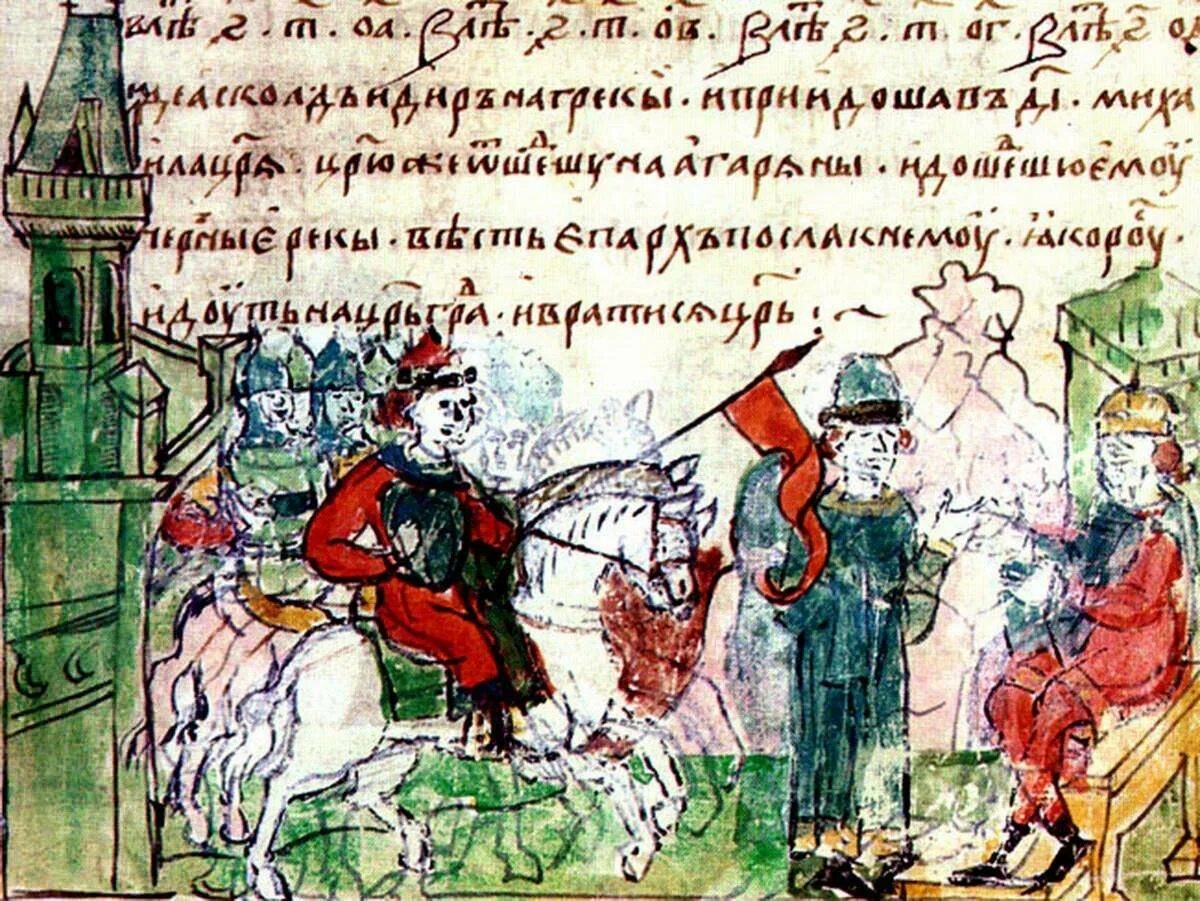 влѣ҃ ҂ѕ . т҃ . оа . Влѣ҃ . ҂ѕ . т҃ . ов҃ . Влѣ҃ ҂ѕ . т҃ . ог҃ . Влѣ҃ ҂ѕ
асколдъ и диръ на грекы . и приидоша въ д҃і . миха
ила цр҃ѧ . цр҃ю же ѿшеⷣшу на агарѧны . и дошеⷣшю емоу
черныѣ рекы . вѣсть епархъ посла к немоу . ꙗко роу҃ .
идоуть на цр҃ьграⷣ . и вратисѧ цр҃ь :~